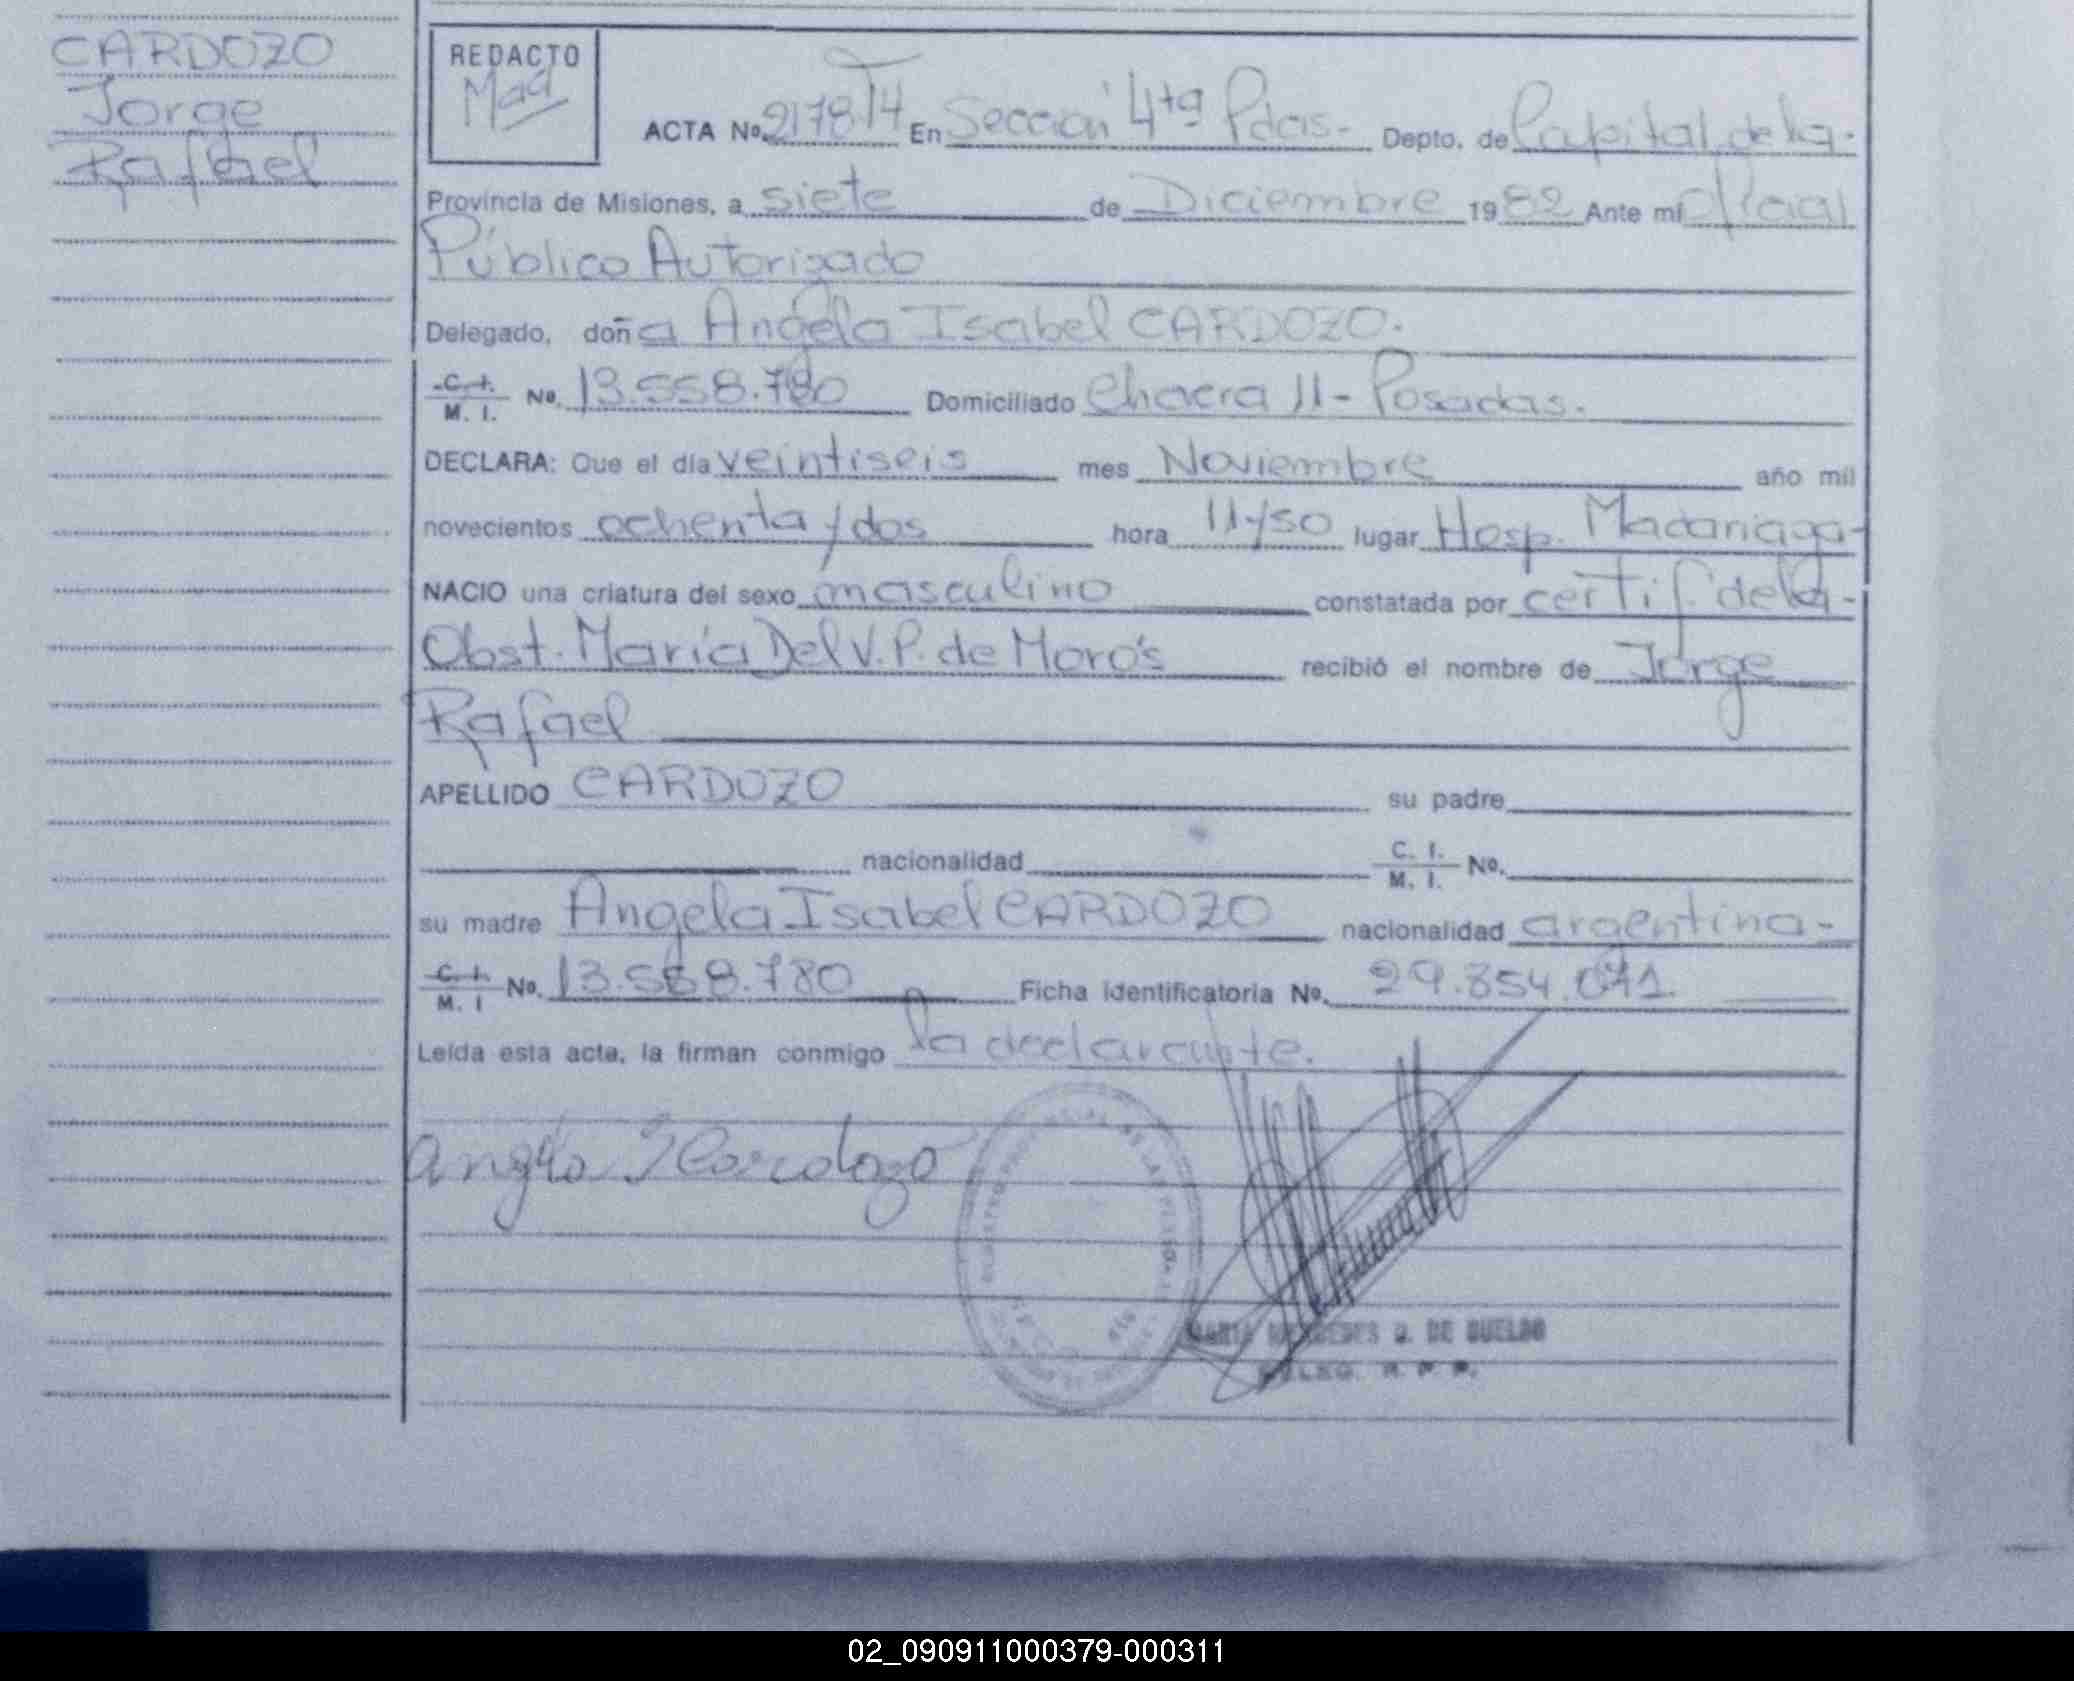 CARDOZO
Jorge
Rafael
REDACTO
Mad
ACTA No. 2178 T4 En Sección 4ta Pdas.- Depto. de Capital de la-
Provincia de Misiones, a siete de Diciembre 1982 Ante mí Oficial
Público Autorizado
Delegado, doña Angela Isabel CARDOZO.
C. I. / M. I. No. 13.558.780 Domiciliado Chacra 11 - Posadas.
DECLARA: Que el día veintiseis mes Noviembre año mil
novecientos ochenta y dos hora 11/50 lugar Hosp. Madariaga-
NACIO una criatura del sexo masculino constatada por certif de la-
Obst. María Del V. P. de Moro's recibió el nombre de Jorge
Rafael
APELLIDO CARDOZO su padre
nacionalidad C. I. / M. I. No.
su madre Angela Isabel CARDOZO nacionalidad argentina-
C. I. / M. I No. 13.558.780 Ficha identificatoria No. 29.854.071
Leída esta acta, la firman conmigo la declarante.
Angela I Cardozo
MARIA MERCEDES D. DE DUELDO
DELEG. R. P. P.
02_090911000379-000311